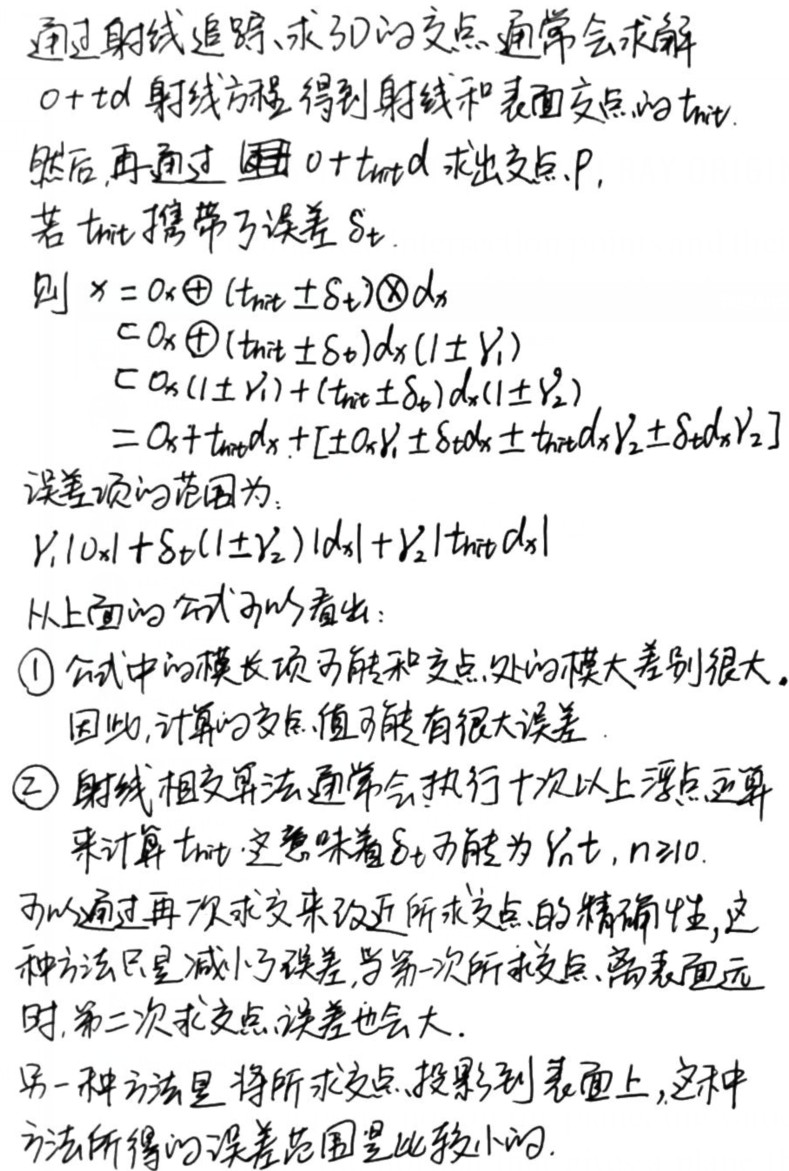 通过射线追踪、求3D的交点通常会求解
o+td 射线方程得到射线和表面交点的 t_hit.
然后,再通过 o+t_hit d 求出交点P,
若 t_hit 携带了误差 δ_t.
则 x = o_x ⊕ (t_hit ± δ_t) ⊗ d_x
⊂ o_x ⊕ (t_hit ± δ_t) d_x (1 ± γ_1)
⊂ o_x (1 ± γ_1) + (t_hit ± δ_t) d_x (1 ± γ_2)
= o_x + t_hit d_x + [± o_x γ_1 ± δ_t d_x ± t_hit d_x γ_2 ± δ_t d_x γ_2]
误差项的范围为:
γ_1 |o_x| + δ_t (1 ± γ_2) |d_x| + γ_2 |t_hit d_x|
从上面的公式可以看出:
① 公式中的模长项可能和交点处的模大差别很大.
因此,计算的交点值可能有很大误差.
② 射线相交算法通常会执行十次以上浮点运算
来计算 t_hit. 这意味着 δ_t 可能为 γ_n t, n≥10.
可以通过再次求交来改进所求交点的精确性,这
种方法只是减小了误差,当第一次所求交点离表面远
时,第二次求交点误差也会大.
另一种方法是将所求交点投影到表面上,这种
方法所得的误差范围是比较小的.